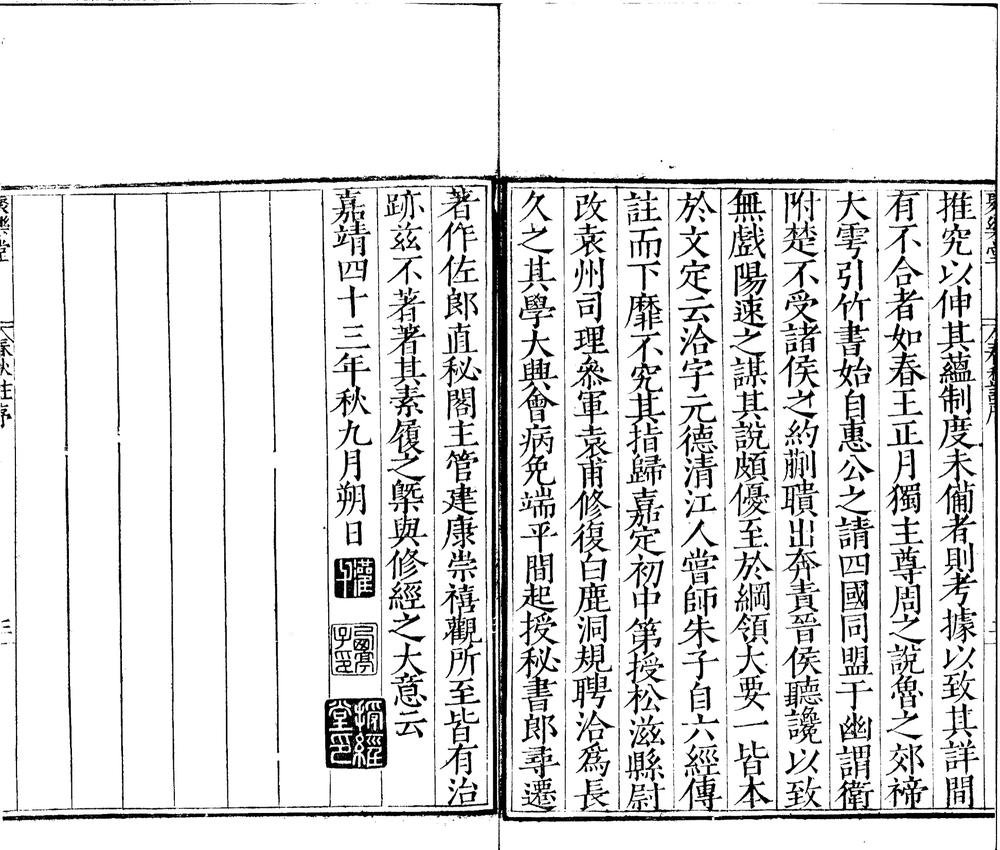 推究以伸其蘊制度未備者則考據以致其詳間
有不合者如春王正月獨主尊周之說魯之郊禘
大雩引竹書始自惠公之請四國同盟于幽謂衛
附楚不受諸侯之約蒯聵出奔責晉侯聽讒以致
無戲陽速之謀其說頗優至於綱領大要一皆本
於文定云洽字元德清江人嘗師朱子自六經傳
註而下靡不究其指歸嘉定初中第授松滋縣尉
改袁州司理叅軍袁甫修復白鹿洞規聘洽爲長
久之其學大興會病免端平間起授秘書郎尋遷
著作佐郎直秘閣主管建康崇禧觀所至皆有治
跡兹不著著其素履之槩與修經之大意云
嘉靖四十三年秋九月朔日
授經堂印
聚樂堂
春秋註序
三